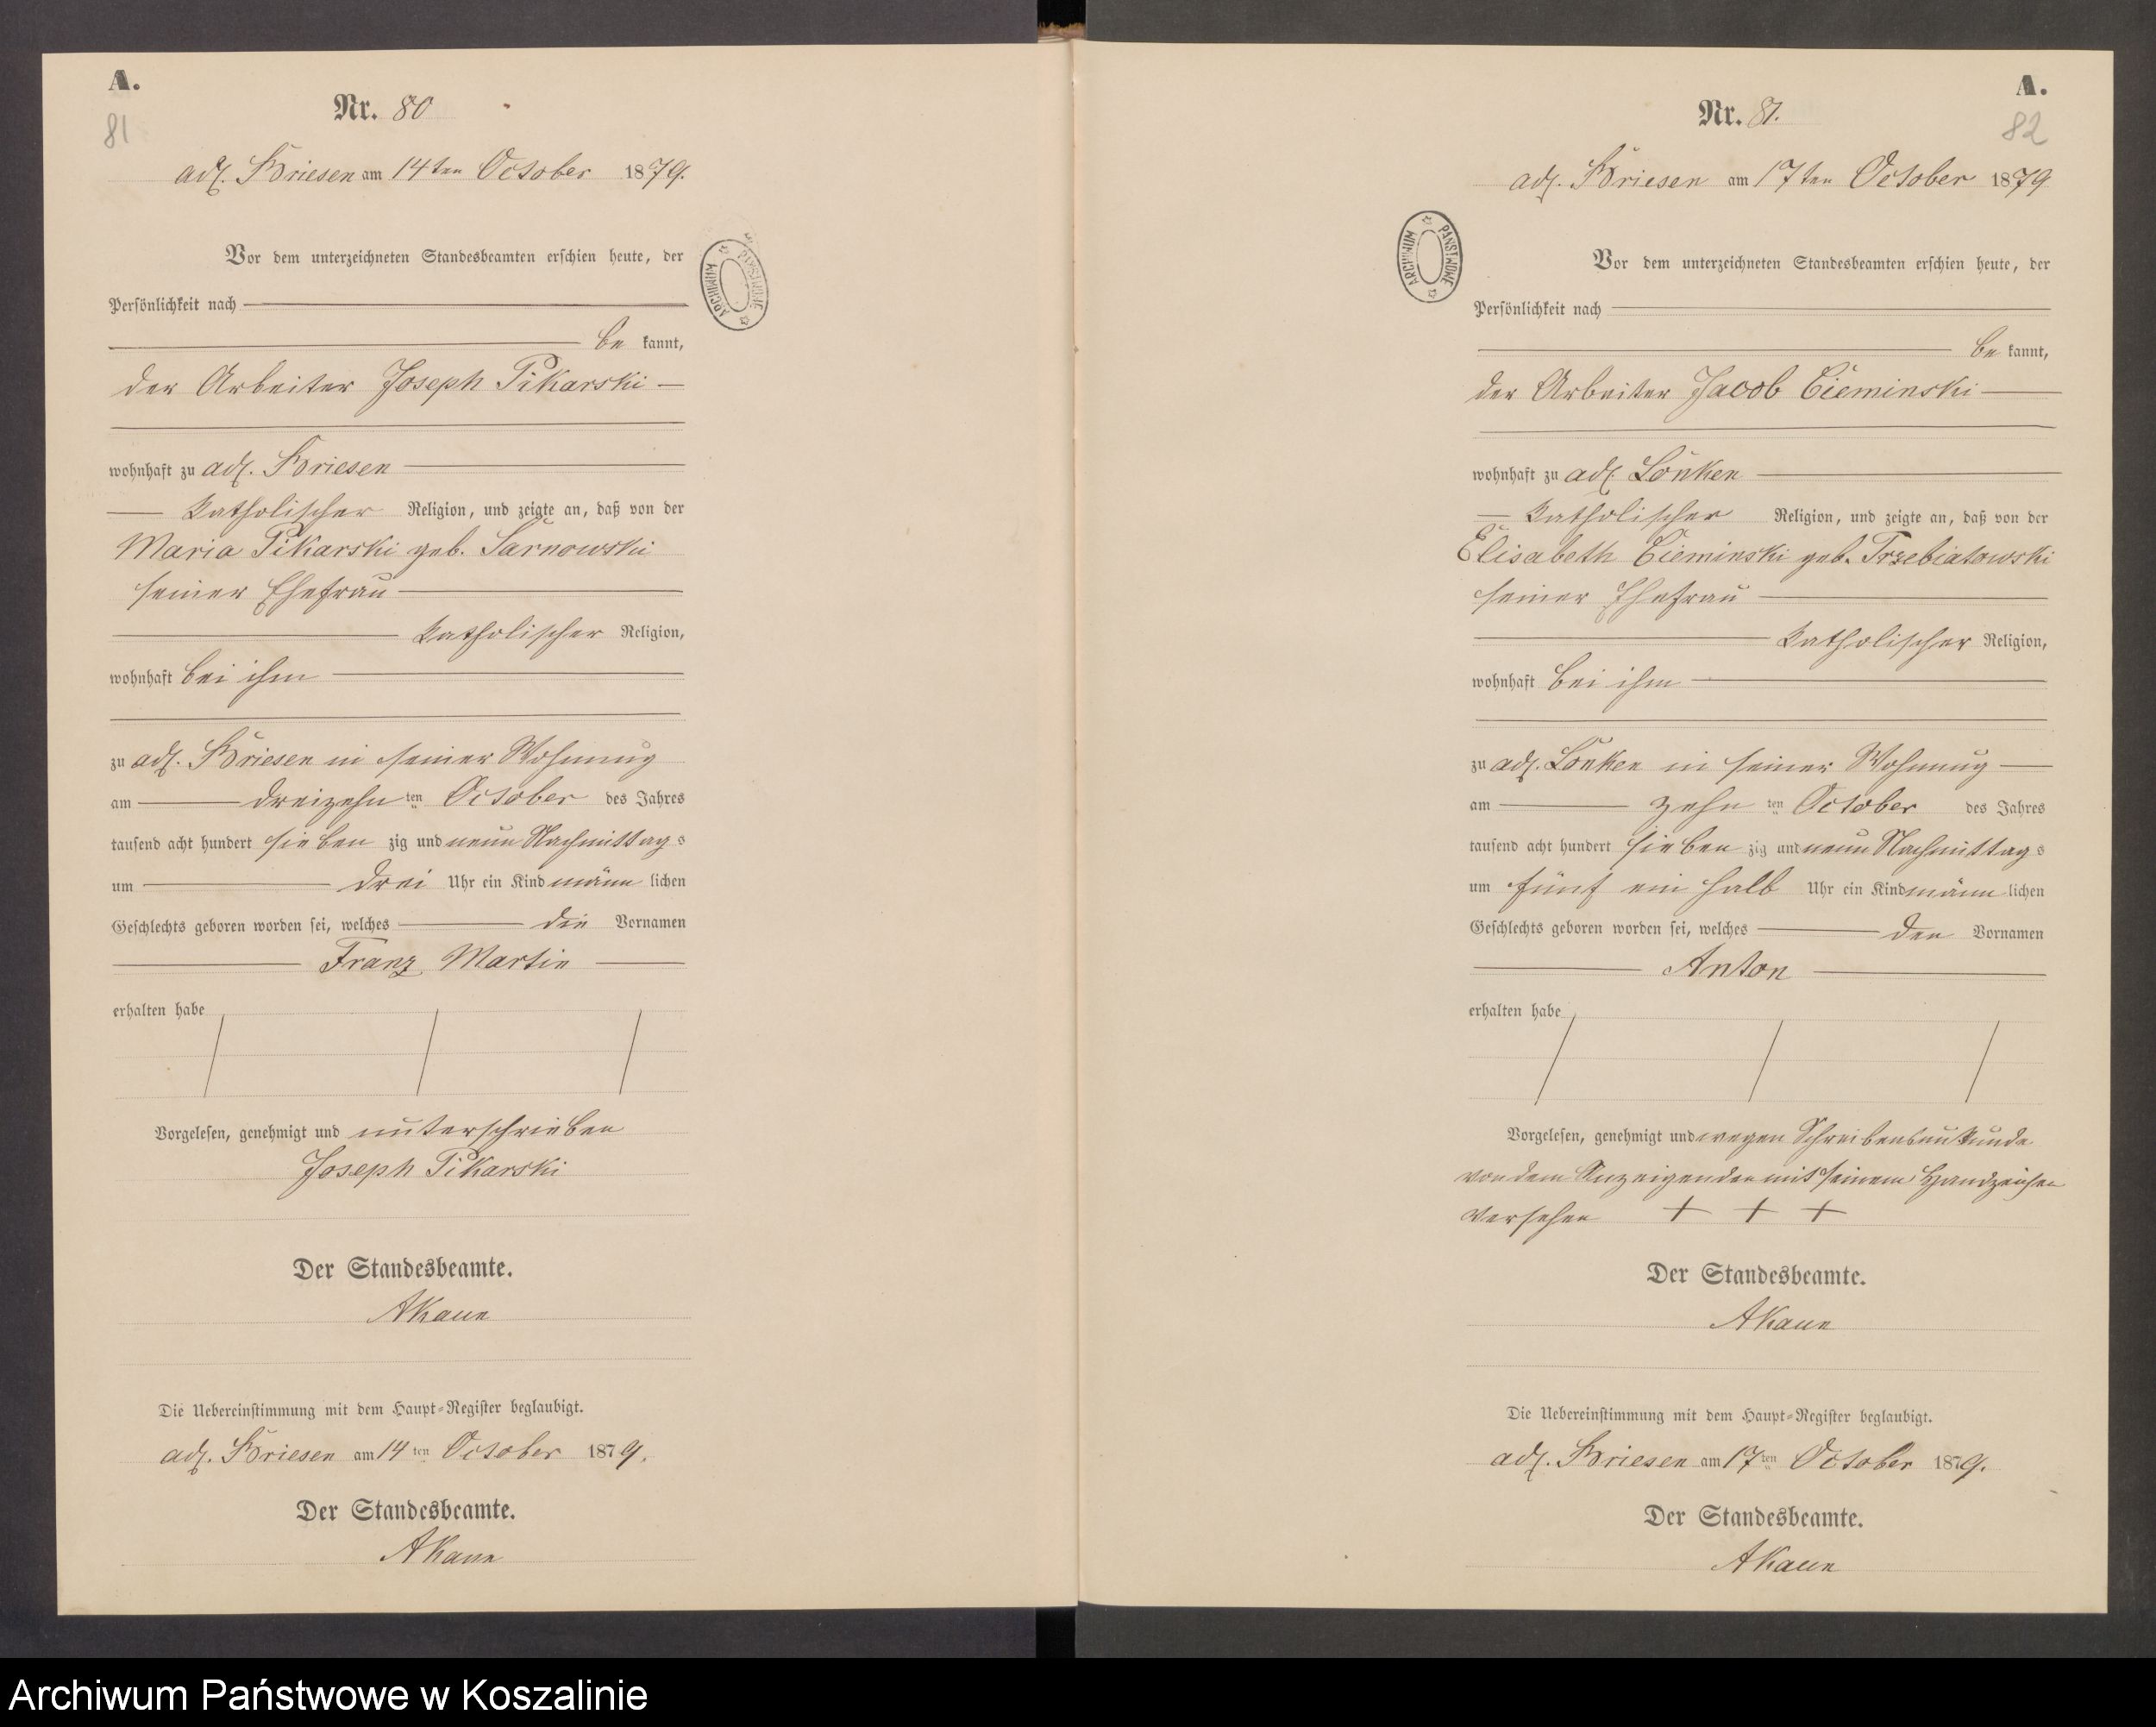 A.
81
Nr. 80
adl. Briesen am 14ten October 1879.
Vor dem unterzeichneten Standesbeamten erschien heute, der
Persönlichkeit nach
be kannt,
der Arbeiter Joseph Pikarski
wohnhaft zu adl. Briesen
katholischer Religion, und zeigte an, daß von der
Maria Pikarski geb. Sarnowski
seiner Ehefrau
katholischer Religion,
wohnhaft bei ihm
zu adl. Briesen in seiner Wohnung
am dreizehn ten October des Jahres
tausend acht hundert sieben zig und neun Nachmittag s
um drei Uhr ein Kind männ lichen
Geschlechts geboren worden sei, welches die Vornamen
Franz Martin
erhalten habe
Vorgelesen, genehmigt und unterschrieben
Joseph Pikarski
Der Standesbeamte.
AKaun
Die Uebereinstimmung mit dem Haupt-Register beglaubigt.
adl. Briesen am 14 ten October 1879.
Der Standesbeamte.
AKaun
ARCHIWUM PAŃSTWOWE
A.
82
Nr. 81.
adl. Briesen am 17ten October 1879
Vor dem unterzeichneten Standesbeamten erschien heute, der
Persönlichkeit nach
be kannt,
der Arbeiter Jacob Cieminski
wohnhaft zu adl. Lonken
katholischer Religion, und zeigte an, daß von der
Elisabeth Cieminski geb. Trzebiatowski
seiner Ehefrau
katholischer Religion,
wohnhaft bei ihm
zu adl. Lonken in seiner Wohnung
am zehn ten October des Jahres
tausend acht hundert sieben zig und neun Nachmittag s
um fünf ein halb Uhr ein Kind männ lichen
Geschlechts geboren worden sei, welches den Vornamen
Anton
erhalten habe
Vorgelesen, genehmigt und wegen Schreibensunkunde
von dem Anzeigenden mit seinem Handzeichen
versehen + + +
Der Standesbeamte.
AKaun
Die Uebereinstimmung mit dem Haupt-Register beglaubigt.
adl. Briesen am 17 ten October 1879.
Der Standesbeamte.
AKaun
ARCHIWUM PAŃSTWOWE
Archiwum Państwowe w Koszalinie